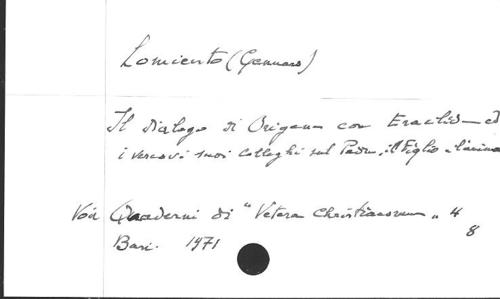 Lomiento (Gennaro)
Il dialogo di Origene con Eraclide ed
i vescovi suoi colleghi sul Padre, il Figlio e l'anima
Voir Quaderni di "Vetera Christianorum" 4
8
Bari. 1971